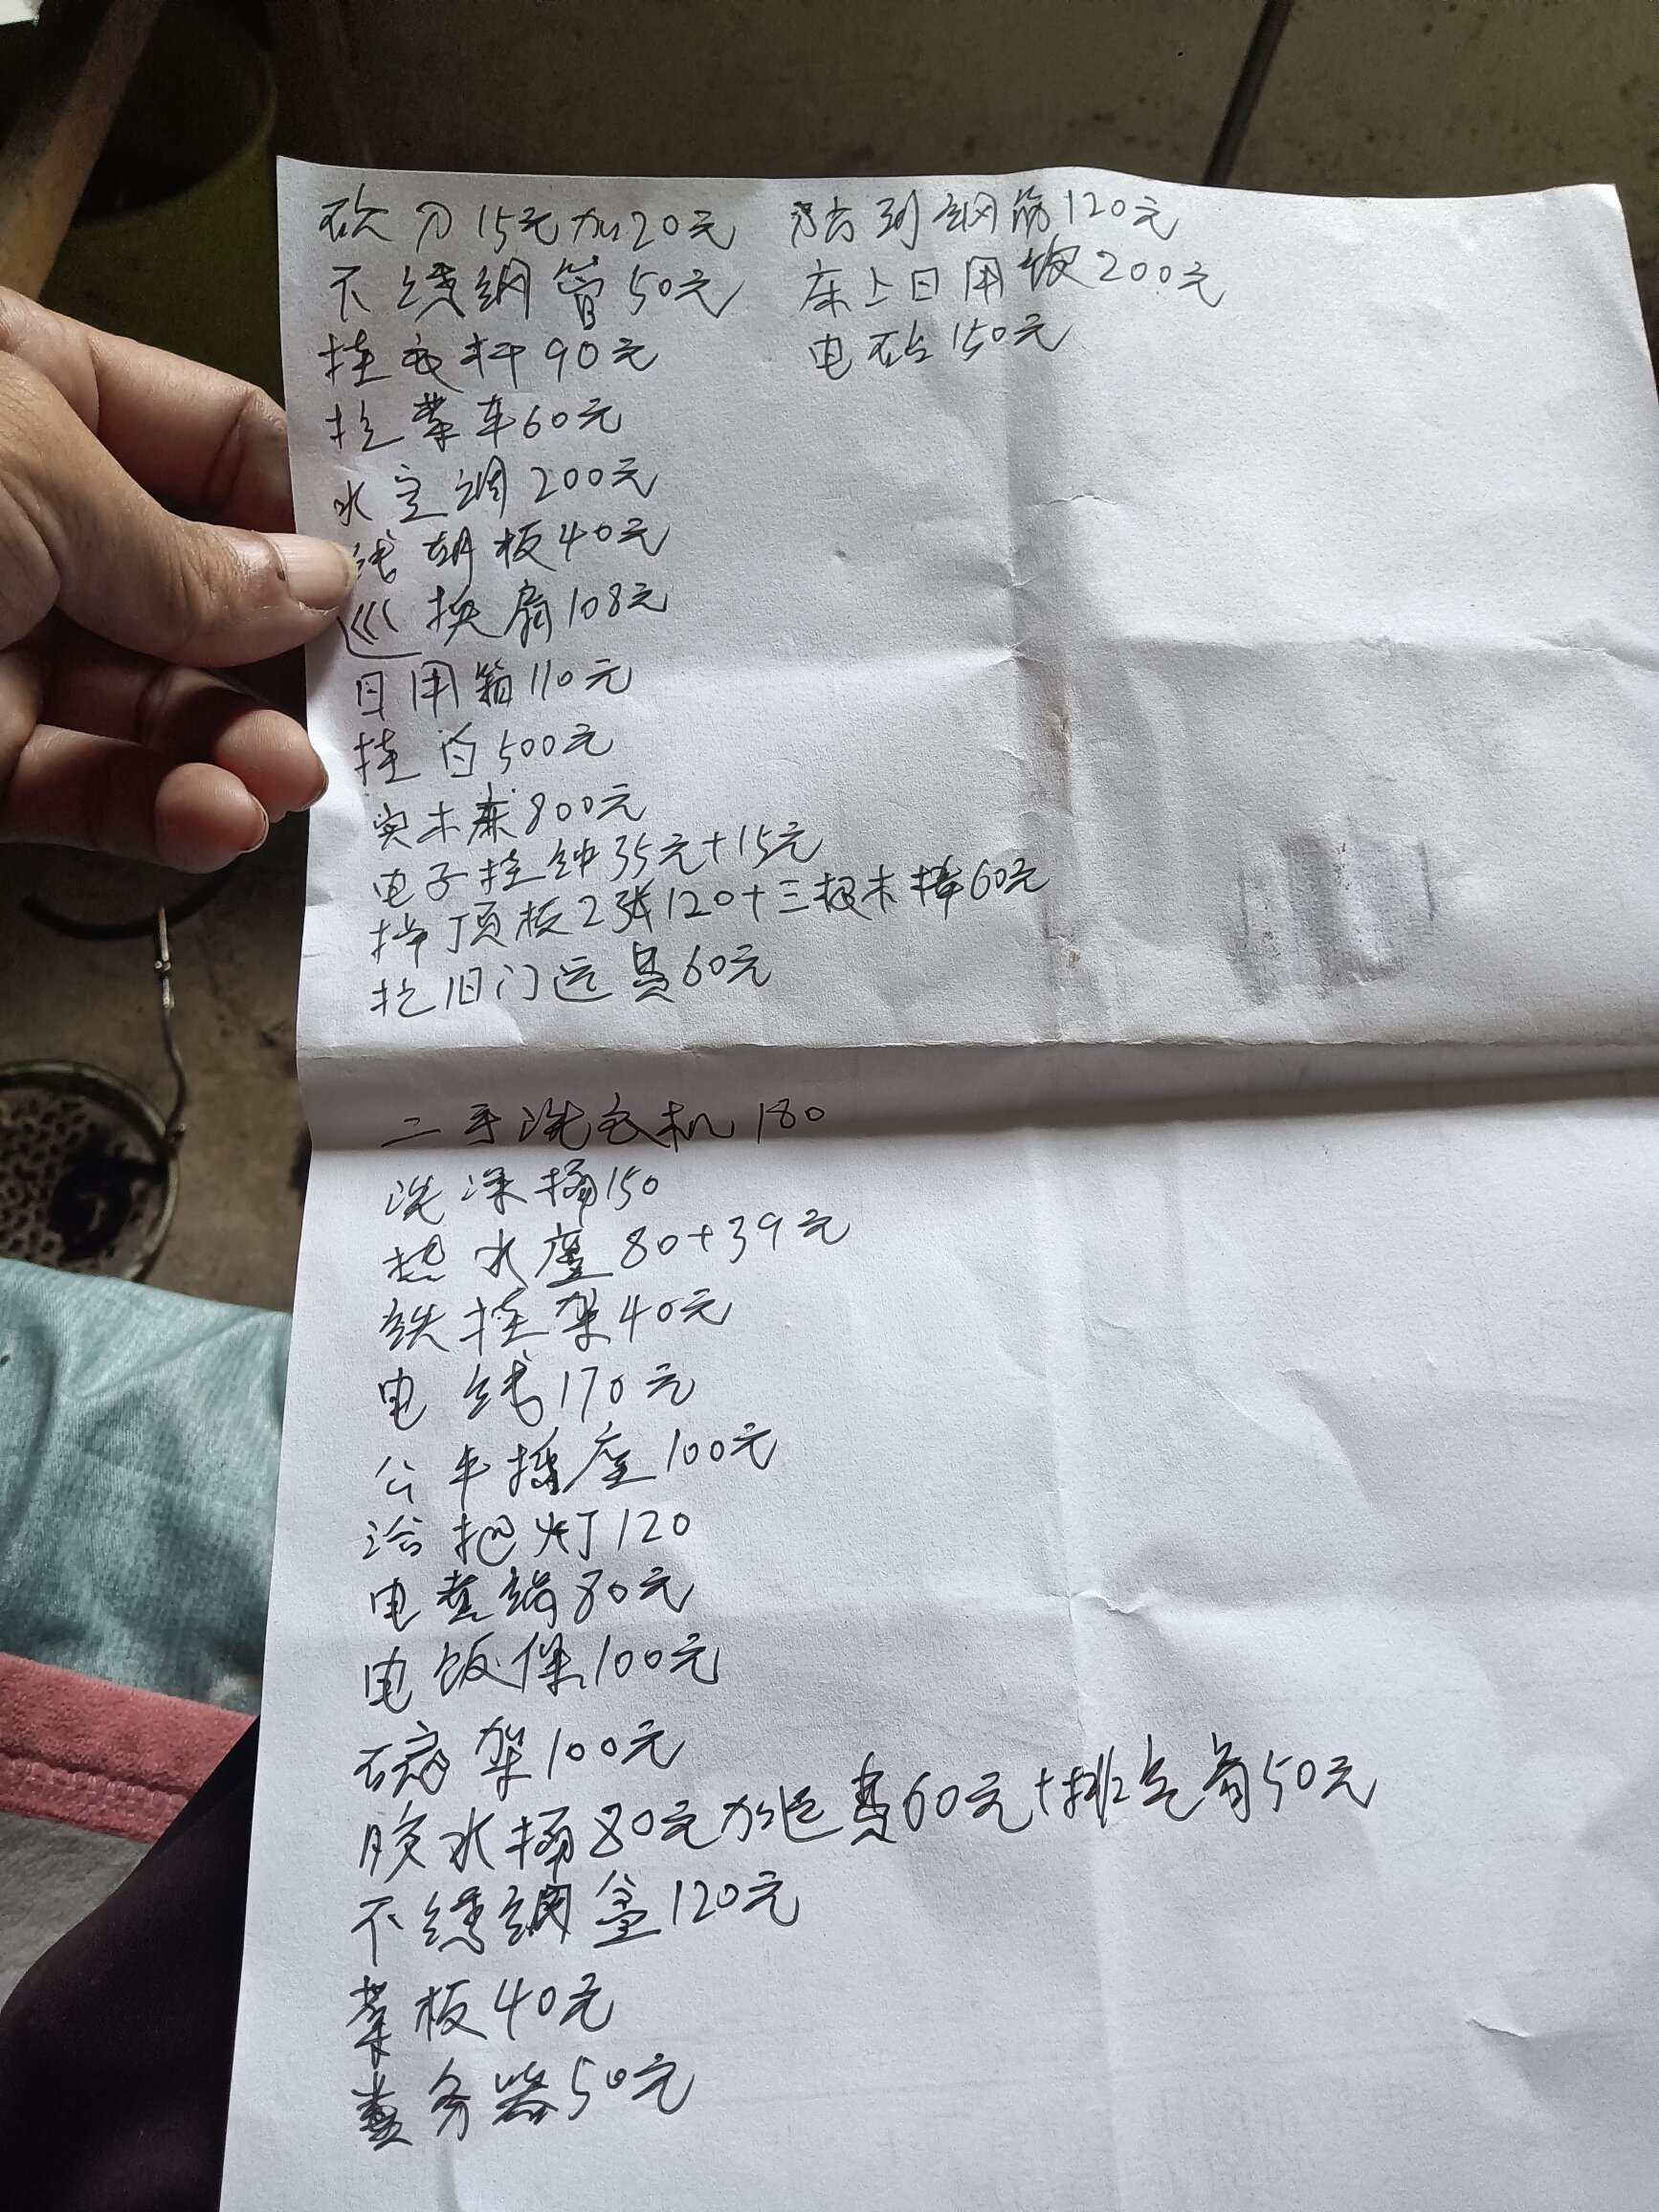 砍刀15元加20元
不绣钢管50元
挂衣杆90元
拉菜车60元
水空调200元
线胡板40元
换扇108元
日用箱110元
挂 500元
实木床800元
电子挂钟35元+15元
吊顶板2张120+三根木棒60元
拉旧门运费60元
到钢筋120元
床上日用 200元
电 150元
二手洗衣机180
洗澡桶150
热水 80+39元
铁挂架40元
电线170元
公牛插座100元
浴把灯120
电煮锅80元
电饭保100元
碗架100元
胶水桶80元加运费60元+排气 50元
不绣钢盆120元
菜板40元
务器50元